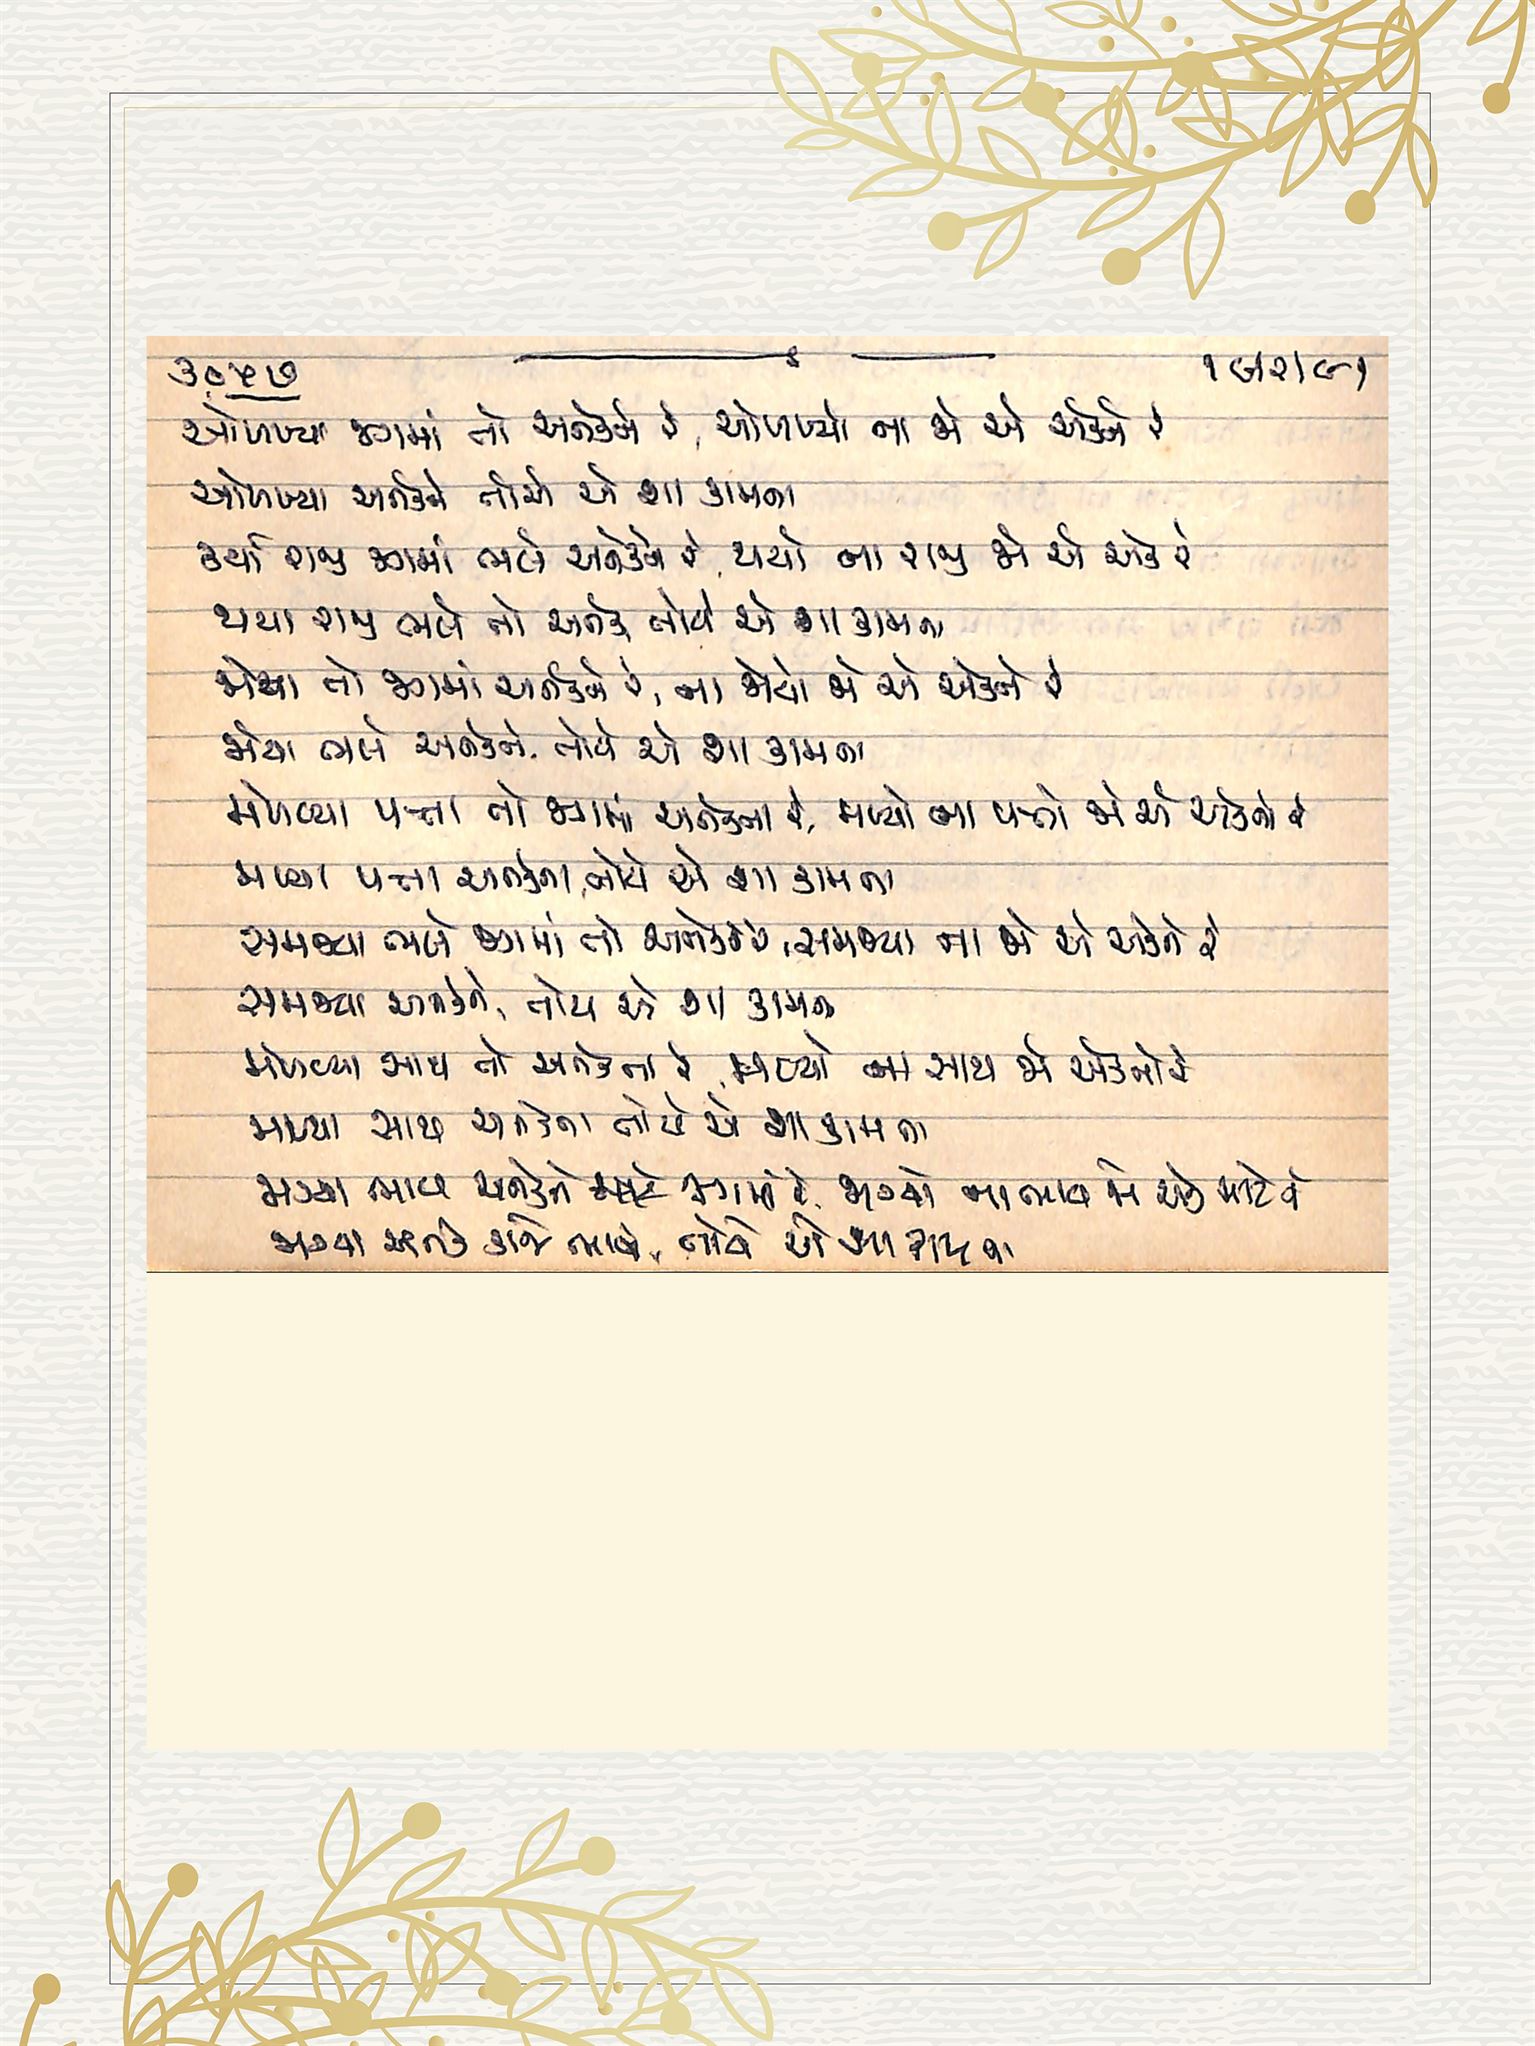 ૩૦૫૭ ૧૭/૨/૯૧
ઓળખ્યા જગમાં તો અનેકને રે, ઓળખ્યો ના જો એ એકને રે
ઓળખ્યા અનેકને તોયે એ શા કામના
કર્યા રાજી જગમાં ભલે અનેકને રે, થયો ના રાજી જો એ એક રે
થયા રાજી ભલે તો અનેક, તોયે એ શા કામના
જોયા તો જગમાં અનેકને રે, ના જોયો જો એ એકને રે
જોયા ભલે અનેકને, તોયે એ શા કામના
મેળવ્યા પત્તા તો જગમાં અનેકના રે, મળ્યો ના પત્તો જો એ એકનો રે
મળ્યા પત્તા અનેકના, તોયે એ શા કામના
સમજ્યા ભલે જગમાં તો અનેકને રે, સમજ્યા ના જો એ એકને રે
સમજ્યા અનેકને, તોય એ શા કામના
મેળવ્યા સાથ તો અનેકના રે, મળ્યો ના સાથ જો એકનો રે
મળ્યા સાથ અનેકના તોયે એ શા કામના
જાગ્યા ભાવ અનેકને જગમાં રે, જાગ્યો ના ભાવ જો એક માટે રે
જાગ્યા અનેક કાજે ભાવ, તોયે એ શા કામના